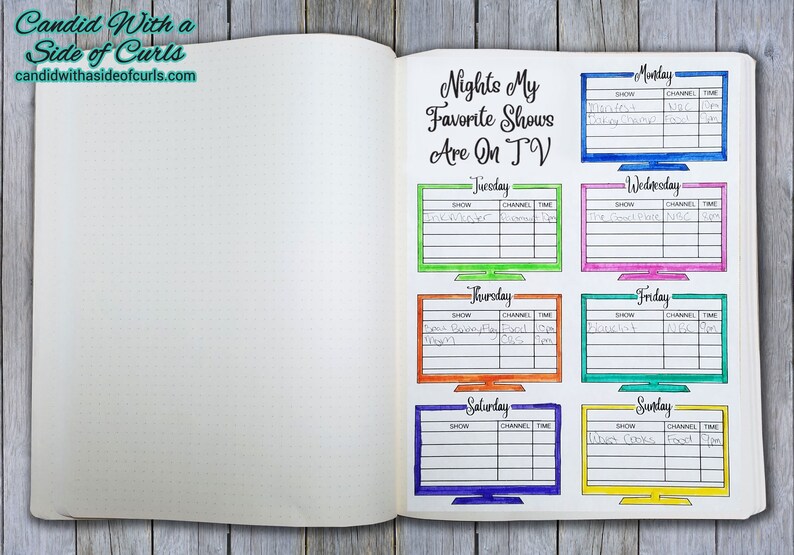 Candid With a
Side of Curls
candidwithasideofcurls.com
Nights My
Favorite Shows
Are On TV
Monday
SHOW CHANNEL TIME
Manifest NBC 10pm
Baking Champ Food 9pm
Tuesday
SHOW CHANNEL TIME
Ink Master Paramount
Wednesday
SHOW CHANNEL TIME
The Good Place NBC 8pm
Thursday
SHOW CHANNEL TIME
Beat Bobby Flay Food 10pm
Mom CBS 9pm
Friday
SHOW CHANNEL TIME
Blacklist NBC 9pm
Saturday
SHOW CHANNEL TIME
Sunday
SHOW CHANNEL TIME
Worst Cooks Food 9pm